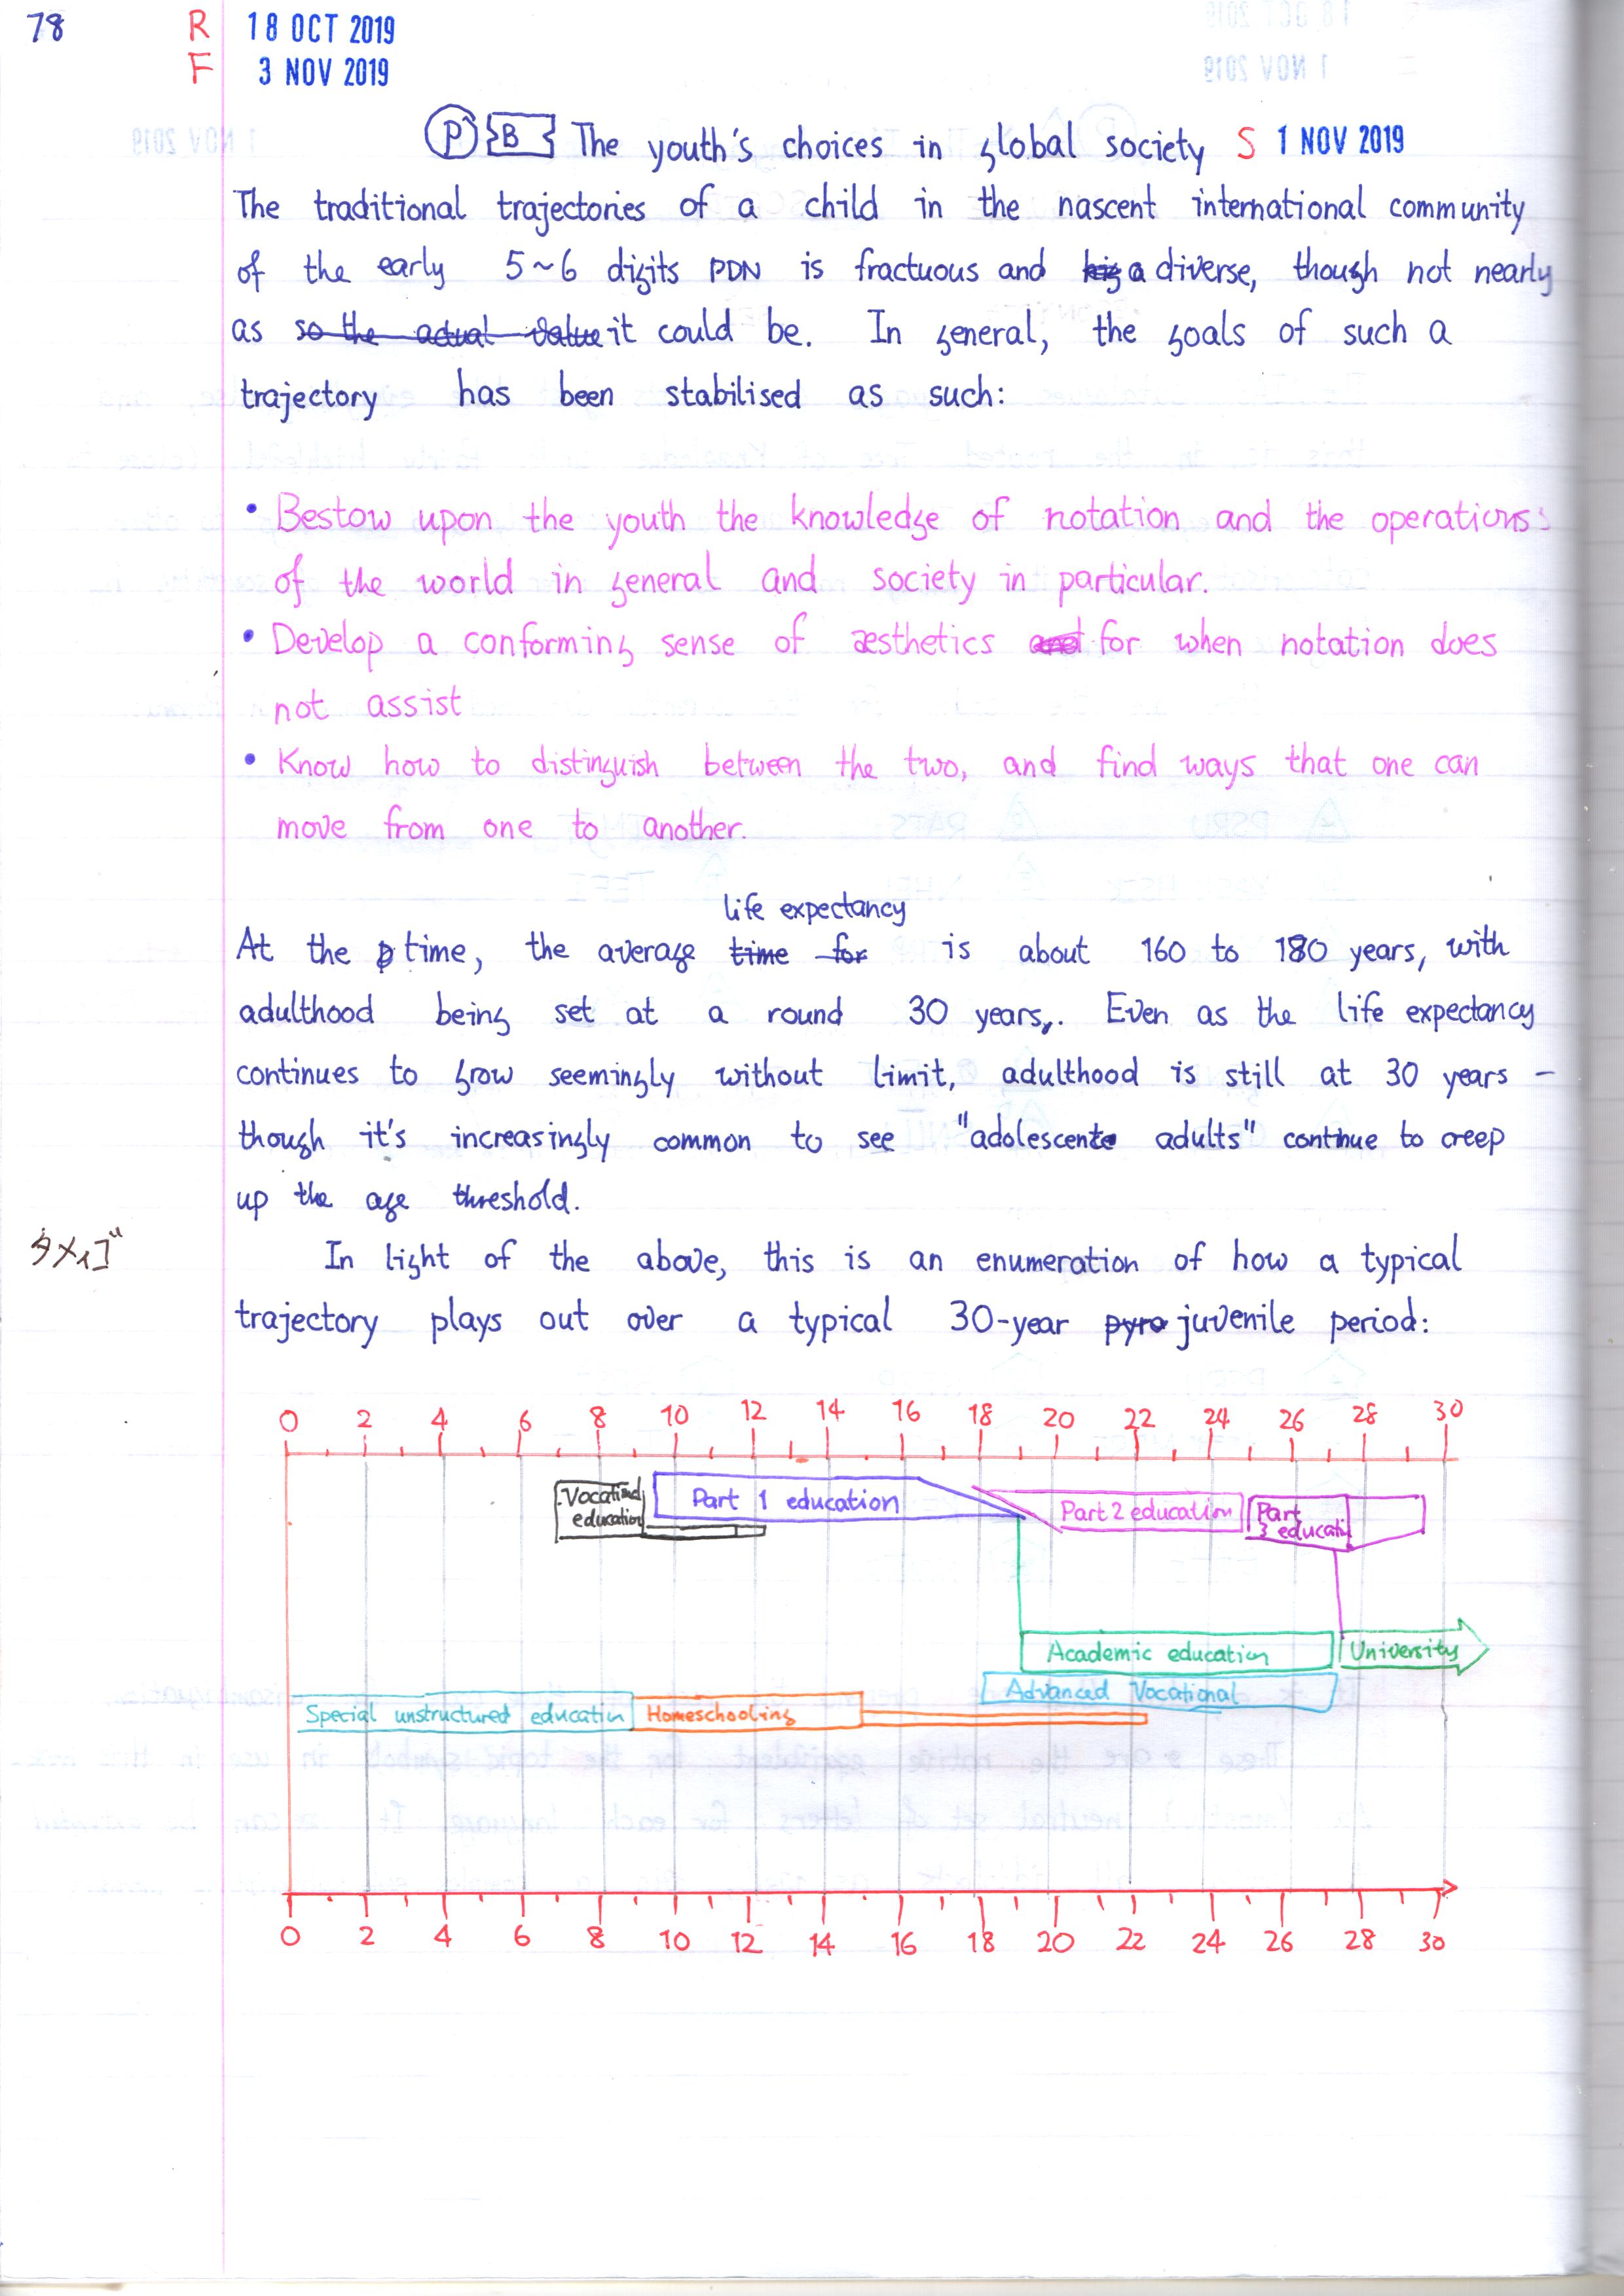 78
R 18 OCT 2019
F 3 NOV 2019
P B The youth's choices in global society S 1 NOV 2019
The traditional trajectories of a child in the nascent international community
of the early 5~6 digits PDN is fractuous and a diverse, though not nearly
as so the actual value it could be. In general, the goals of such a
trajectory has been stabilised as such:
• Bestow upon the youth the knowledge of notation and the operations
of the world in general and society in particular.
• Develop a conforming sense of æsthetics and for when notation does
not assist
• Know how to distinguish between the two, and find ways that one can
move from one to another.
life expectancy
At the p time, the average time for is about 160 to 180 years, with
adulthood being set at a round 30 years,. Even as the life expectancy
continues to grow seemingly without limit, adulthood is still at 30 years –
though it's increasingly common to see "adolescente adults" continue to creep
up the age threshold.
タメイゴ
In light of the above, this is an enumeration of how a typical
trajectory plays out over a typical 30-year pyro juvenile period:
0 2 4 6 8 10 12 14 16 18 20 22 24 26 28 30
Vocational
education
Part 1 education
Part 2 education
Part
3 educati
Academic education
University
Advanced Vocational
Special unstructured education
Homeschooling
0 2 4 6 8 10 12 14 16 18 20 22 24 26 28 30